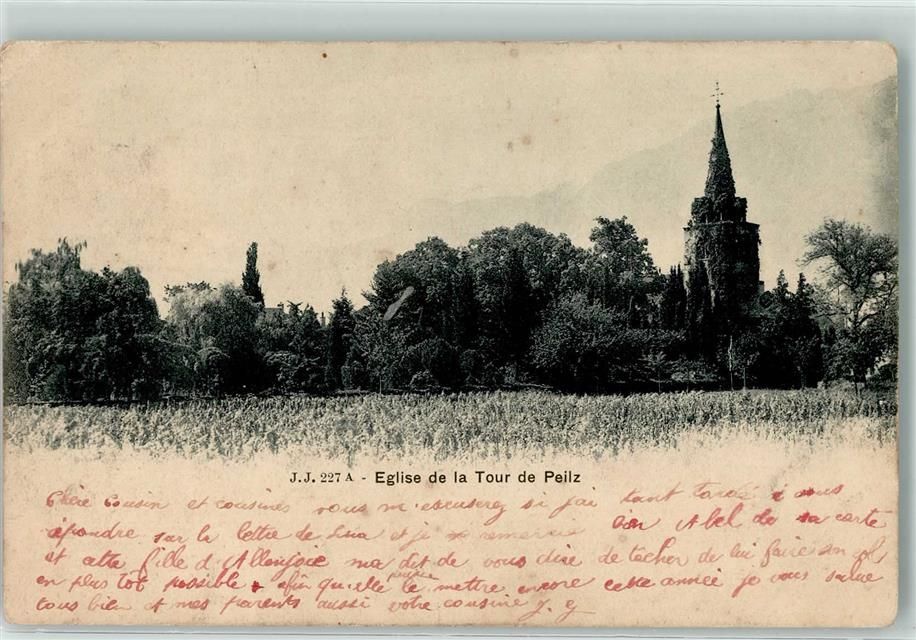 J.J. 227 A - Eglise de la Tour de Peilz
Chère Cousin et cousines vous m'excuserez si j'ai tant tardé à vous
épondre sur la lettre de Lina et je remercie bien Abel de sa carte
et cette fille d'Allenjoie ma dit de vous dire de tâcher de lui faire son col
en plus tôt possible afin qu'elle puisse le mettre encore cette année je vous salue
tous bien et mes parents aussi votre cousine J. G